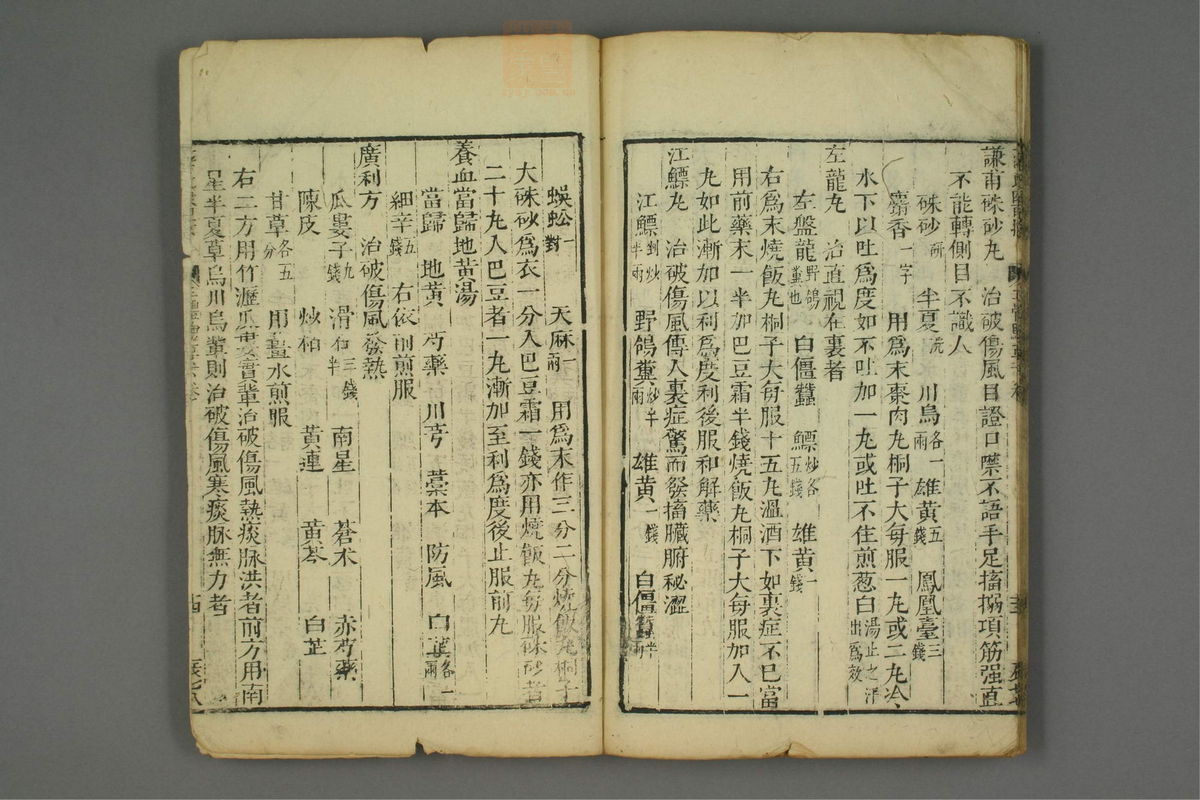 謙甫硃砂丸　治破傷風目證口噤不語手足搐搦項筋强直
不能轉側目不識人
硃砂研　半夏洗　川烏各一兩　雄黃五錢　鳳凰臺三錢
麝香一字　用爲末棗肉丸桐子大每服一丸或二丸冷
水下以吐爲度如不吐加一丸或吐不住煎葱白湯止之汗出爲效
左龍丸　治直視在裏者
左盤龍野鴿糞也　白僵蠶　鰾炒各五錢　雄黃一錢
右爲末燒飯丸桐子大每服十五丸溫酒下如裏症不巳當
用前藥末一半加巴豆霜半錢燒飯丸桐子大每服加入一
丸如此漸加以利爲度利後服和解藥
江鰾丸　治破傷風傳入裏症驚而發搐臟腑秘澀
江鰾剉炒半兩　野鴿糞炒半兩　雄黃一錢　白僵蠶半兩
蜈蚣一對　天麻一兩　用爲末作三分二分燒飯丸桐子
大硃砂爲衣一分入巴豆霜一錢亦用燒飯丸每服硃砂者
二十丸入巴豆者一丸漸加至利爲度後止服前丸
養血當歸地黃湯
當歸　地黃　芍藥　川芎　藁本　防風　白芷各一兩
細辛五錢　右依前煎服
廣利方　治破傷風發熱
瓜蔞子九錢　滑石三錢半　南星　蒼术　赤芍藥
陳皮　炒柏　黃連　黃芩　白芷
甘草各五分　用薑水煎服
右二方用竹瀝瓜蔞實輩治破傷風熱痰脉洪者前方用南
星半夏草烏川烏輩則治破傷風寒痰脉無力者